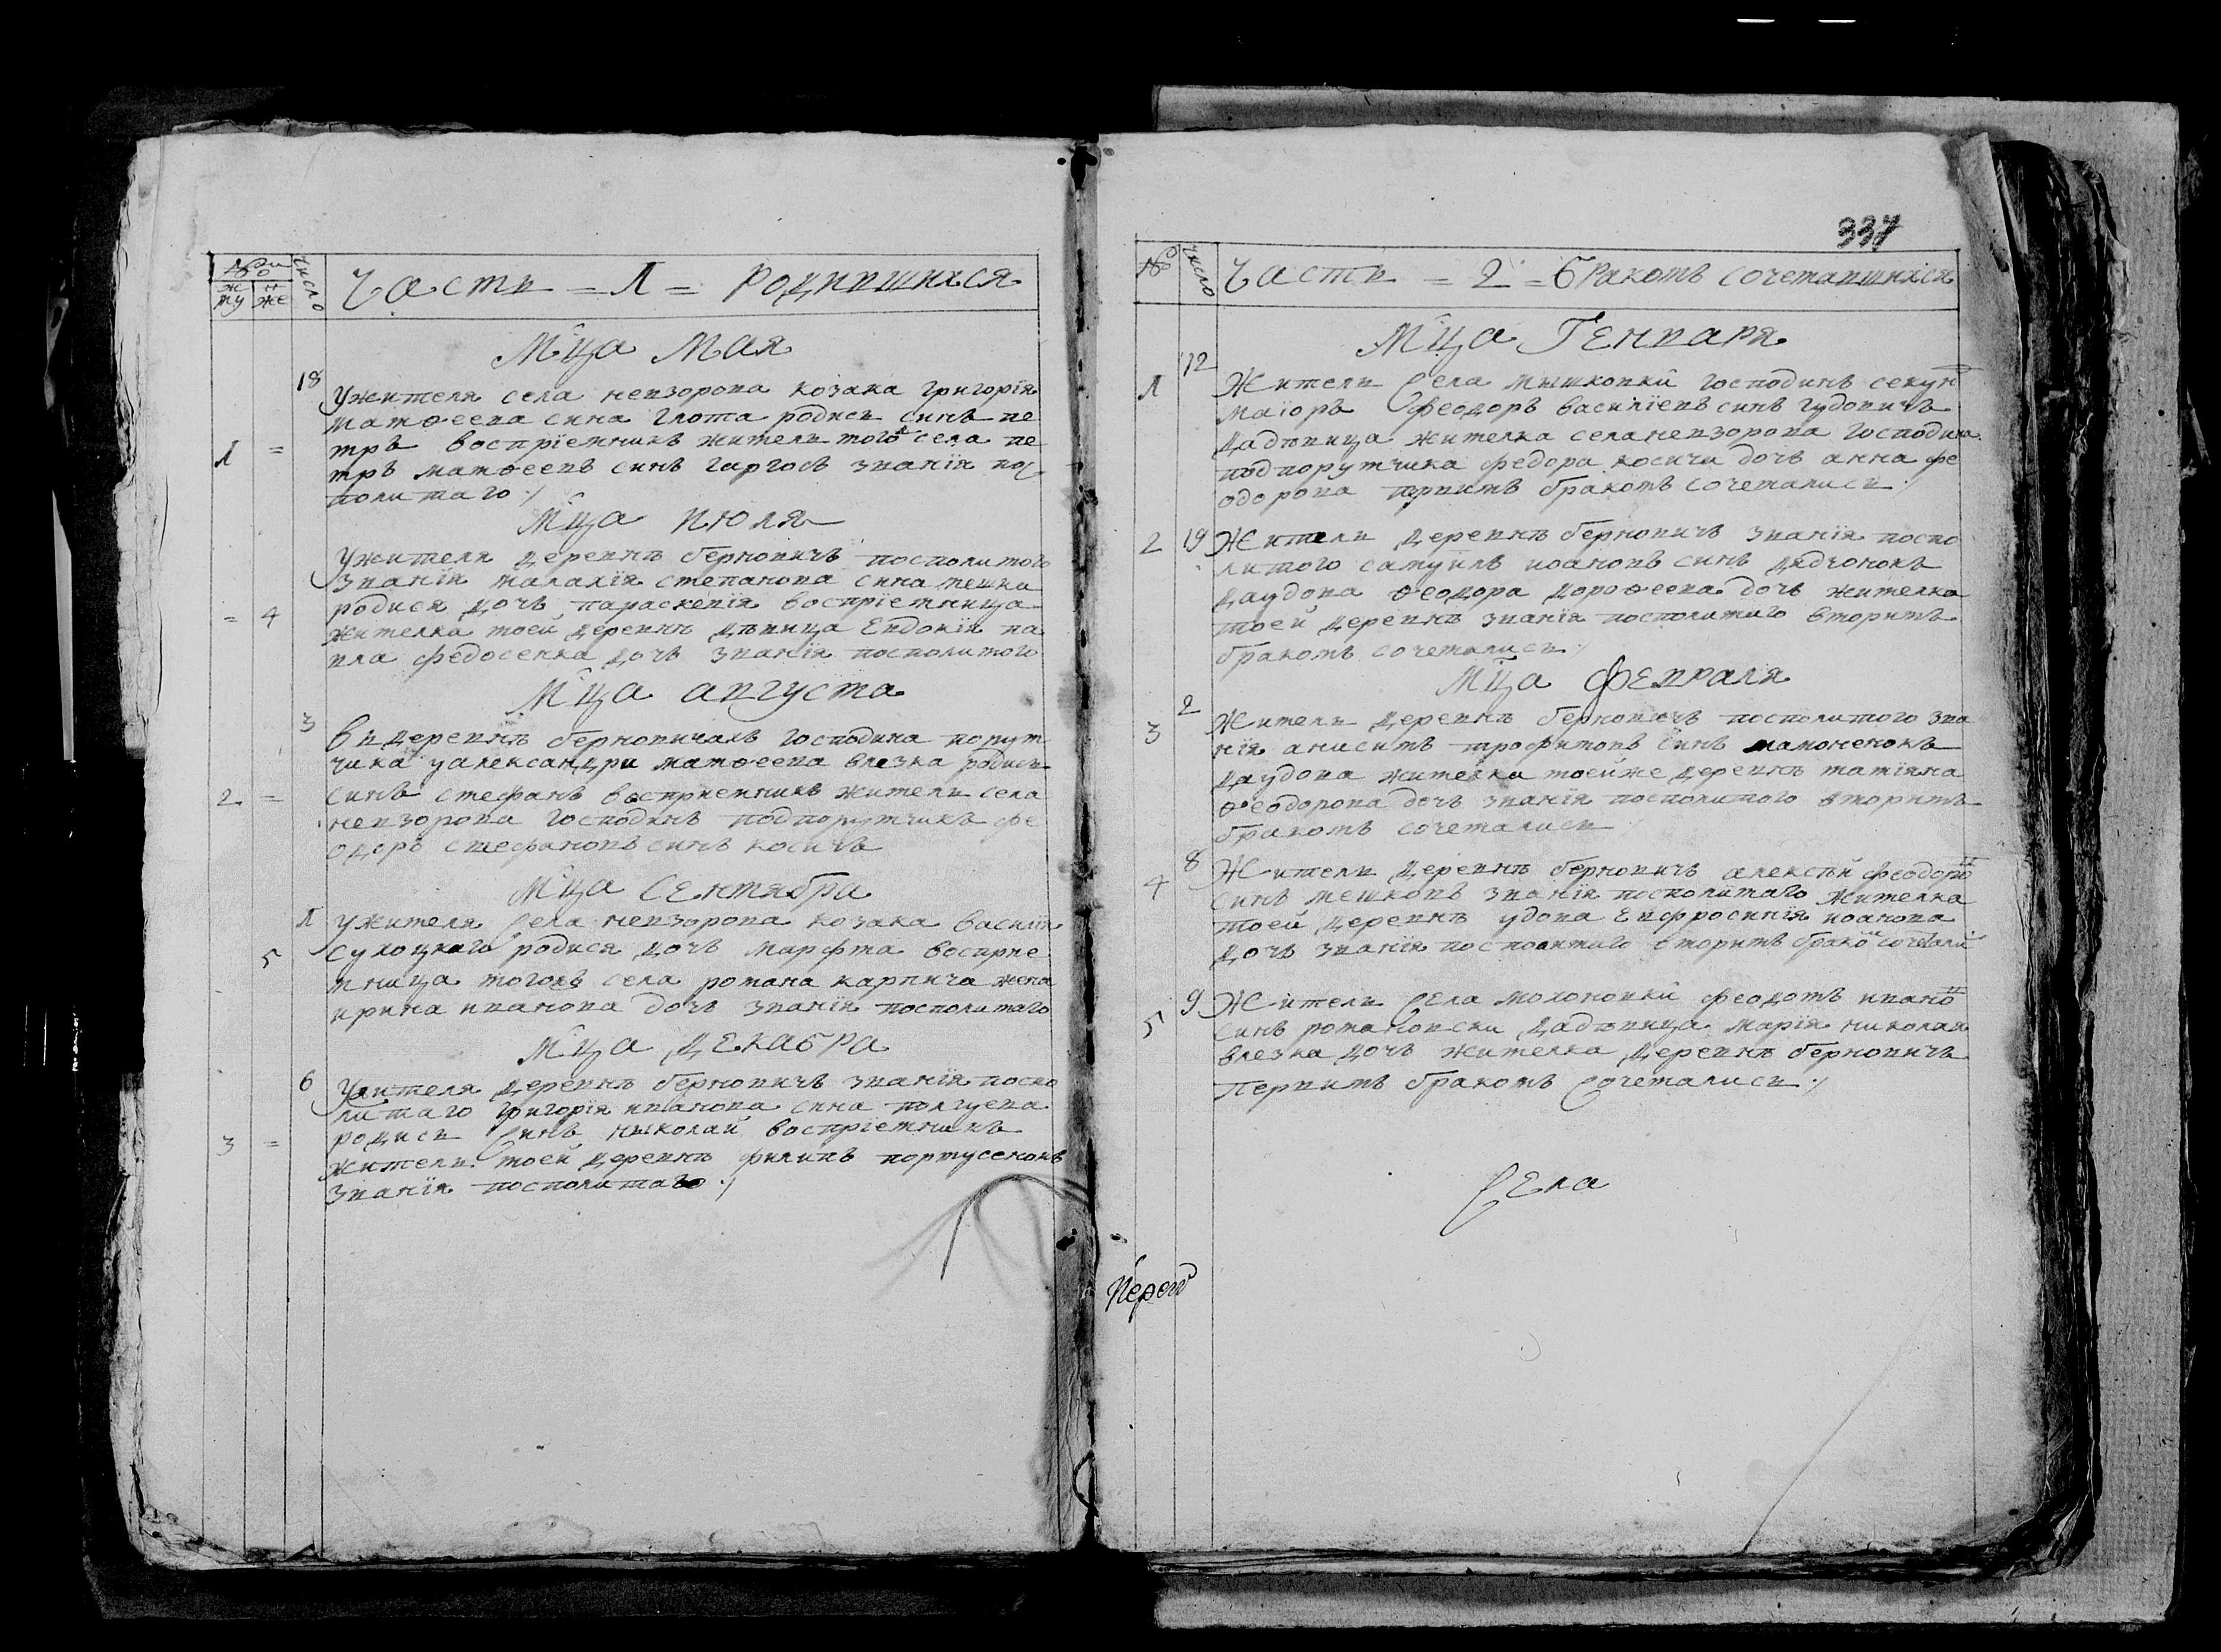 №ми
число
му
же
Части = 1 = Родившихся
Мца Мая
18
У жителя села невзорова козака григорія
матѳеева сина глота родис синъ пе
1 =
тръ воспріемникъ житель того села пе
тръ матѳеевъ синъ гаргосъ званія пос
политаго
Мца июля
У жителя деревнѣ берновичъ посполитого
званія малахія степанова сина мешка
= 4
родися дочь параскевія воспріемница
жителка тоей деревнѣ дѣвица Евдокія па
вла федосенка дочъ званія посполитого
Мца августа
3
В деревнѣ берновичахъ господина порут
чика у александри матѳеева влезка родися
2 =
синъ стефанъ восприемникъ житель села
невзорова господинъ подпорутчикъ фе
одоръ стефановъ синъ косичъ
Мца Сентября
1
У жителя села невзорова козака василія
5
сулоцкаго родися дочъ марфта восприе
мница тогожъ села романа карпича жена
ирина иванова дочъ званія посполитаго
Мца декабра
6
У жителя деревнѣ берновичъ званія поспо
литаго григорія иванова сина полгуева
3 =
родися синъ николай воспріемникъ
житель тоей деревнѣ филипъ портусенокъ
званія посполитаго
337
№
число
Части = 2 = бракомъ сочетавшихся
Мца Генваря
12
1
Житель Села мышковки господинъ секун
маіоръ Феодоръ василіевъ синъ гудовичъ
дадѣвица жителка села невзорова господина
подпорутчика федора косича дочъ анна фе
одорова первимъ бракомъ сочеталися
2 19
Житель деревнѣ берновичъ званія поспо
литого самуилъ иоановъ синъ дядчонокъ
даудова ѳеодора дороѳеева дочъ жителка
тоей деревнѣ званія посполитаго вторимъ
бракомъ сочеталися
Мца Февраля
2
3
Житель деревнѣ берновичъ посполитого зва
нія анисимъ трофимовъ синъ мамоненокъ
даудова жителка тоей же деревнѣ татіяна
ѳеодорова дочъ званія посполитого вторимъ
бракомъ сочеталися
8
4
Житель деревнѣ берновичъ алексѣй феодоро
синъ мешковъ званія посполитаго жителка
тоей деревнѣ удова Евфросинія иоанова
дочъ званія посполитаго вторимъ брако сочетали
9
5
Житель Села молоновки феодотъ ивано
синъ романовски дадѣвица марія николая
влезка дочъ жителка деревнѣ берновичъ
первимъ бракомъ Сочеталися
Села